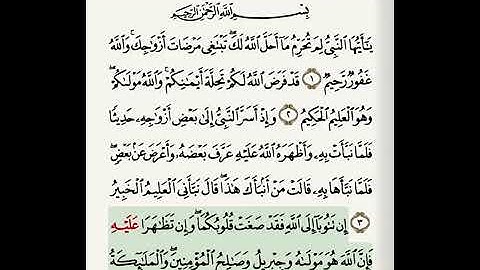 بِسْمِ ٱللَّهِ ٱلرَّحْمَٰنِ ٱلرَّحِيمِ
يَٰٓأَيُّهَا ٱلنَّبِيُّ لِمَ تُحَرِّمُ مَآ أَحَلَّ ٱللَّهُ لَكَۖ تَبْتَغِي مَرْضَاتَ أَزْوَٰجِكَۚ وَٱللَّهُ
غَفُورٌ رَّحِيمٌ ١ قَدْ فَرَضَ ٱللَّهُ لَكُمْ تَحِلَّةَ أَيْمَٰنِكُمْۚ وَٱللَّهُ مَوْلَىٰكُمْۖ
وَهُوَ ٱلْعَلِيمُ ٱلْحَكِيمُ ٢ وَإِذْ أَسَرَّ ٱلنَّبِيُّ إِلَىٰ بَعْضِ أَزْوَٰجِهِۦ حَدِيثًا
فَلَمَّا نَبَّأَتْ بِهِۦ وَأَظْهَرَهُ ٱللَّهُ عَلَيْهِ عَرَّفَ بَعْضَهُۥ وَأَعْرَضَ عَنۢ بَعْضٍۖ
فَلَمَّا نَبَّأَهَا بِهِۦ قَالَتْ مَنْ أَنۢبَأَكَ هَٰذَاۖ قَالَ نَبَّأَنِيَ ٱلْعَلِيمُ ٱلْخَبِيرُ
٣ إِن تَتُوبَآ إِلَى ٱللَّهِ فَقَدْ صَغَتْ قُلُوبُكُمَاۖ وَإِن تَظَٰهَرَا عَلَيْهِ
فَإِنَّ ٱللَّهَ هُوَ مَوْلَىٰهُ وَجِبْرِيلُ وَصَٰلِحُ ٱلْمُؤْمِنِينَۖ وَٱلْمَلَٰٓئِكَةُ